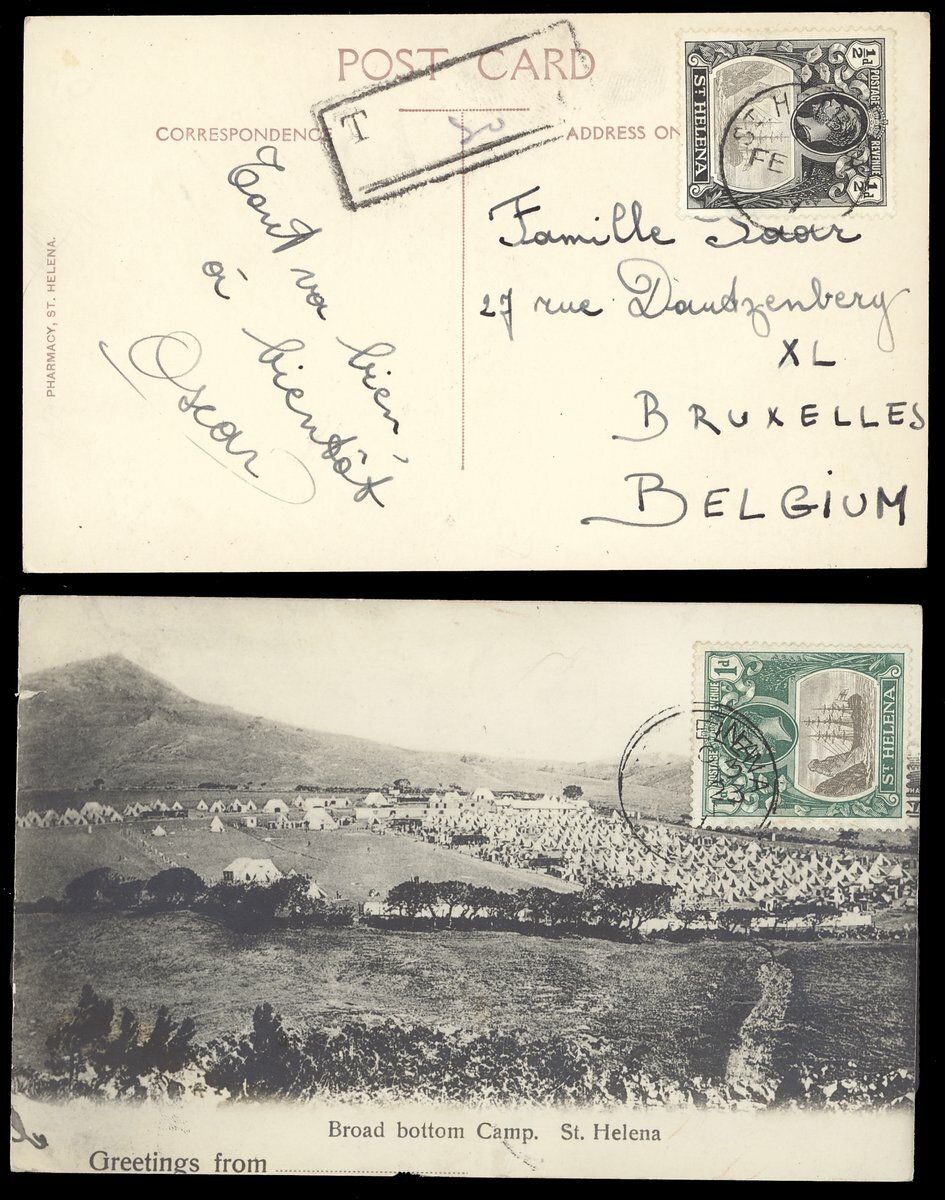 POST CARD
CORRESPONDENCE
ADDRESS ON
T
½d
½d
POSTAGE & REVENUE
ST HELENA
ST. H
FE
Tout va bien,
à bientôt
Oscar
PHARMACY, ST. HELENA.
Famille
27 rue Dautzenberg
XL
BRUXELLES
BELGIUM
1d
ST HELENA
Broad bottom Camp. St. Helena
Greetings from